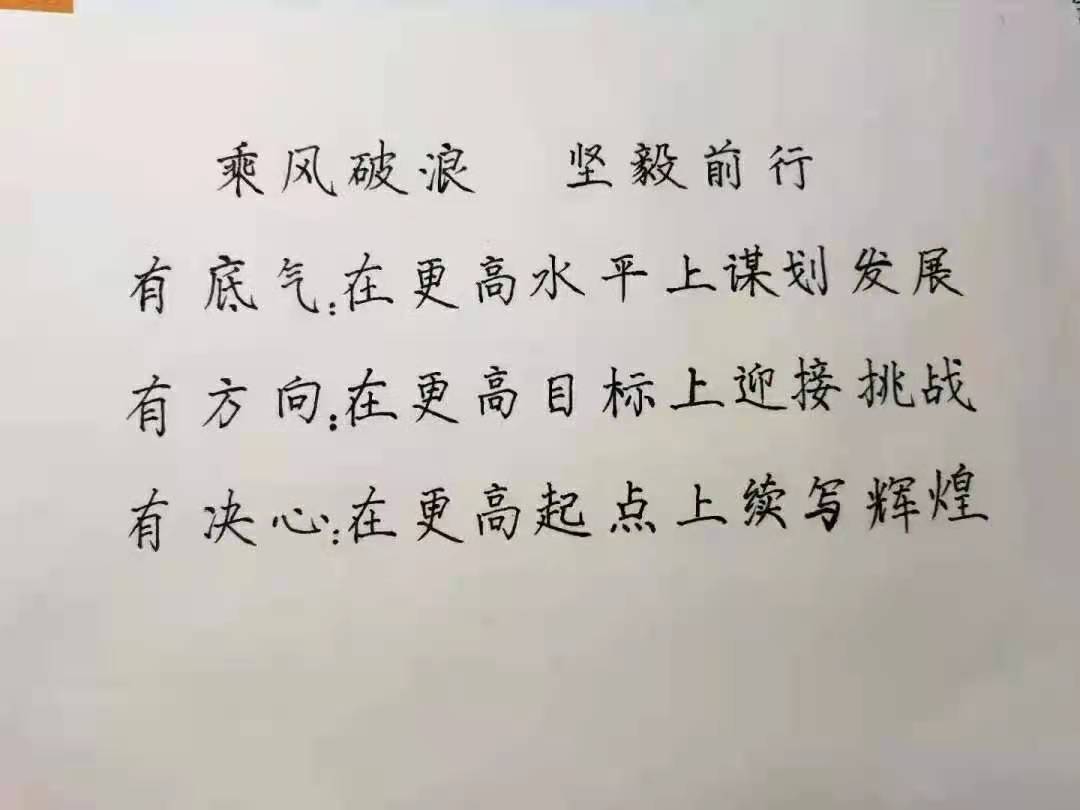 乘风破浪 坚毅前行
有底气:在更高水平上谋划发展
有方向:在更高目标上迎接挑战
有决心:在更高起点上续写辉煌